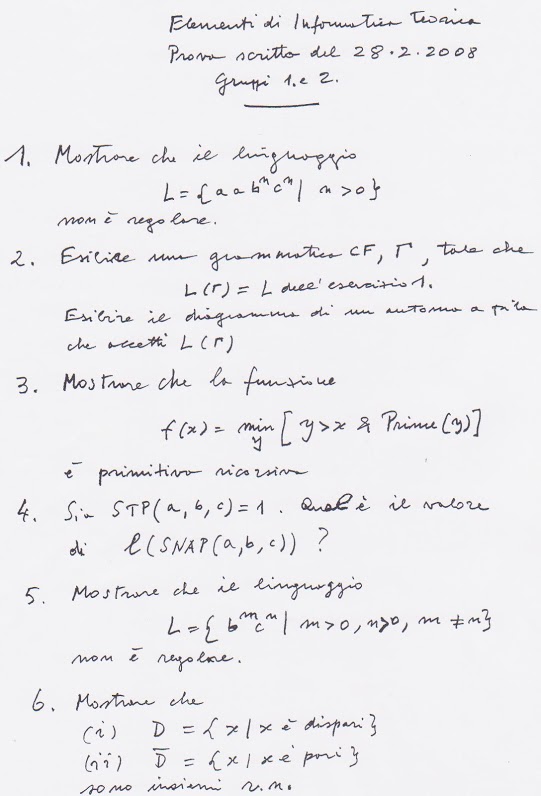 Elementi di Informatica Teorica
Prova scritta del 28.2.2008
Gruppi 1. e 2.
1. Mostrare che il linguaggio
L = {a a bⁿ cⁿ | n > 0}
non è regolare.
2. Esibire una grammatica CF, Γ, tale che
L(Γ) = L dell'esercizio 1.
Esibire il diagramma di un automa a pila
che accetti L(Γ)
3. Mostrare che la funzione
f(x) = min_y [y > x & Prime(y)]
è primitiva ricorsiva
4. Sia STP(a, b, c) = 1. Qual è il valore
di l(SNAP(a, b, c)) ?
5. Mostrare che il linguaggio
L = {bᵐ cⁿ | m > 0, n > 0, m ≠ n}
non è regolare.
6. Mostrare che
(i) D = {x | x è dispari}
(ii) D̅ = {x | x è pari}
sono insiemi r.n.